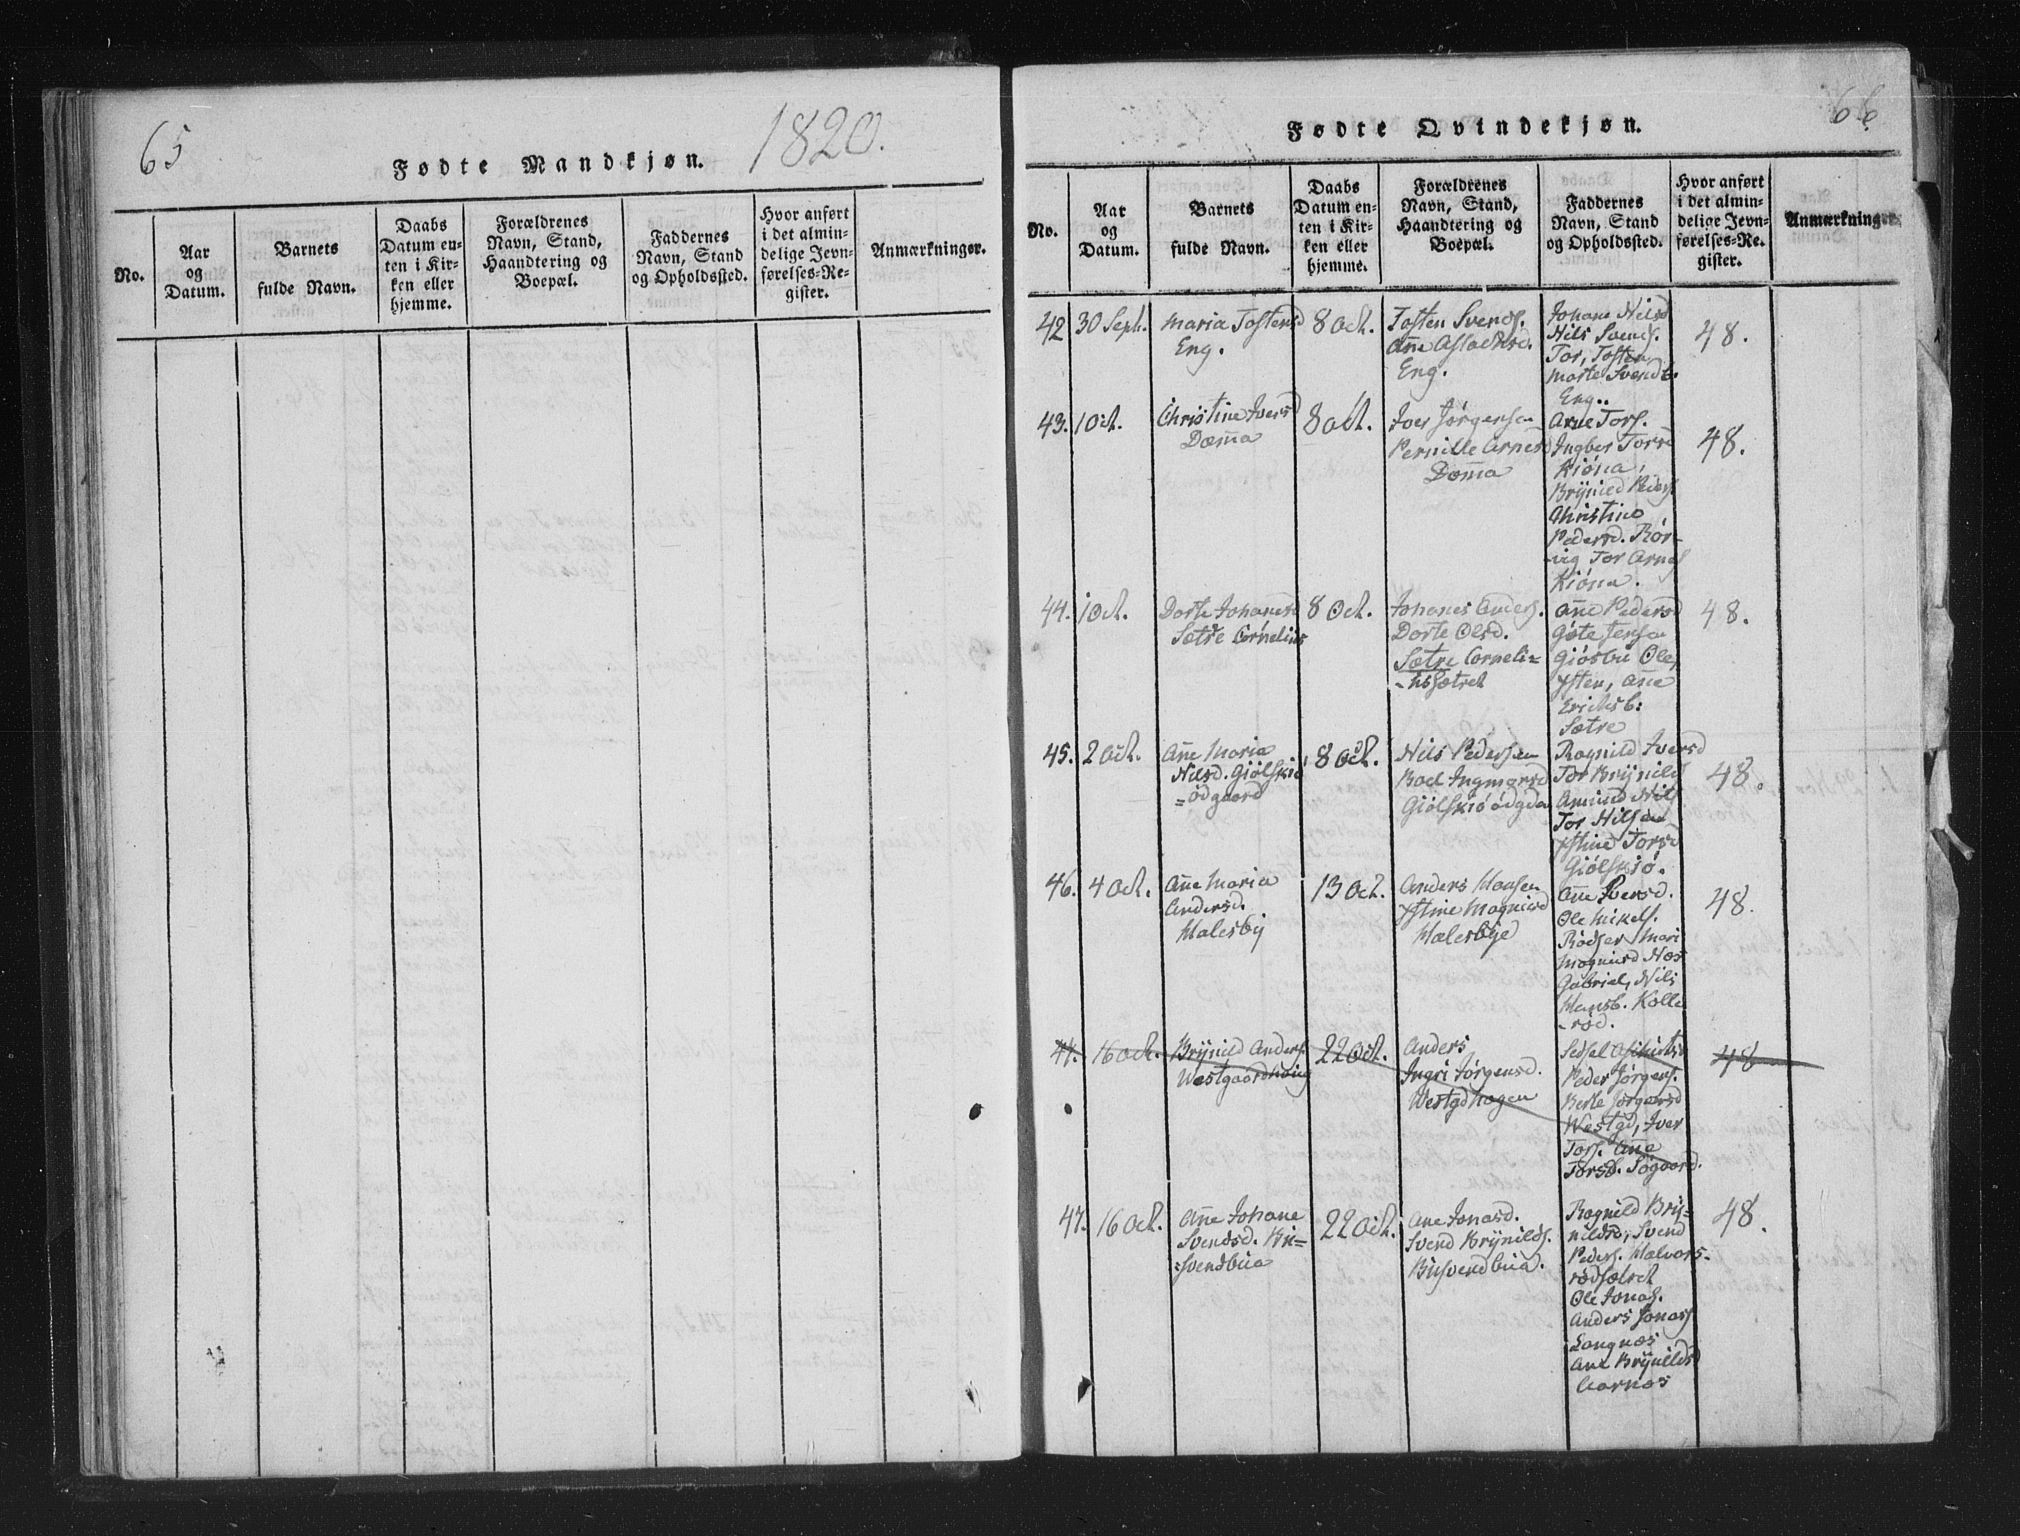 65
Fødte Mandkjøn.
1820.
No.
Aar
og
Datum.
Barnets
fulde Navn.
Daabs
Datum en-
ten i Kir-
ken eller
hjemme.
Forældrenes
Navn, Stand,
Haandtering og
Boepæl.
Faddernes
Navn, Stand
og Opholdssted.
Hvor anført
i det almin-
delige Jevn-
førelses-Re-
gister.
Anmærkninger.
66
Fødte Qvindekjøn.
No.
Aar
og
Datum.
Barnets
fulde Navn.
Daabs
Datum en-
ten i Kir-
ken eller
hjemme.
Forældrenes
Navn, Stand,
Haandtering og
Boepæl.
Faddernes
Navn, Stand
og Opholdssted.
Hvor anført
i det almin-
delige Jevn-
førelses-Re-
gister.
Anmærkninger
42
30 Sept.
Maria Tostensd
Eng.
8 Oct.
Tosten Svends.
Ane Aslachsd.
Eng.
Johane Nilsd
Nils Svends.
Tor, Tosten
Marte Svendb.
Eng.
48.
43.
1 Oct.
Christine Iversd
Dæma
8 Oct.
Iver Jørgensen
Pernille Arnesd
Dæma
Arne Tors.
Ingber Torsd
Kiøna,
Brynild Peders
Christine
Pedersd. Rør-
vig Tor Arnes
Kiøna.
48.
44.
1 Oct.
Dorte Johanesd
Sætre Cornelius
8 Oct.
Johanes Anders.
Dorte Olsd.
Sætre Corneli=
-ussætret
Ane Pedersd
Giøte Jensen
Giøsbu Ole,
Ysten, Ane
Ericksb:
Sætre
48.
45.
2 Oct.
Ane Maria
Nilsd. Giølskiø
=ødgaard
8 Oct.
Nils Pedersen
Boel Ingmarsd
Giølskiø ødgda
Ragnild Iversd
Tor Brynilds
Amund Nils
Tor Nilsen
Ystine Torsd
Giølskiø.
48.
46.
4 Oct.
Ane Maria
Andersd.
Halesby
13 Oct.
Anders Hansen
Ystine Magnisd
Halesbye
Ane Iversd.
Ole Mikels.
Rødser Mari
Magnusd Næs
Gabriel, Nils
Hansb. Kolle
-rød.
48.
47.
16 Oct.
Brynild Anders.
Westgaardhaug
22 Oct.
Anders
Ingri Jørgensd.
Westgdhagen
Sedsel
Peder Jørgens.
Berte Jørgensd
Westgd, Iver
Tors. Ane
Torsd. Søgaard.
48
47.
16 Oct.
Ane Johane
Svendsd. Bu=
=svendbua
22 Oct.
Ane Jonasd.
Svend Brynilds.
Busvendbua.
Ragnild Bry=
nildsd, Svend
Peders. Halvors-
rødsætret
Ole Jonas.
Anders Jonas
Langnæs
Ane Brynildsd
48.